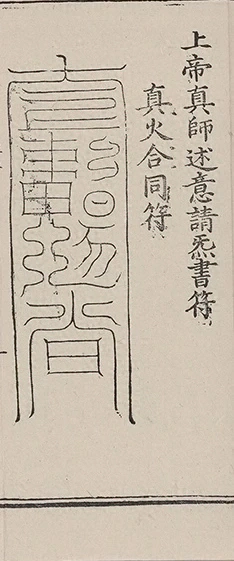 上帝真師述意請炁書符
真火合同符